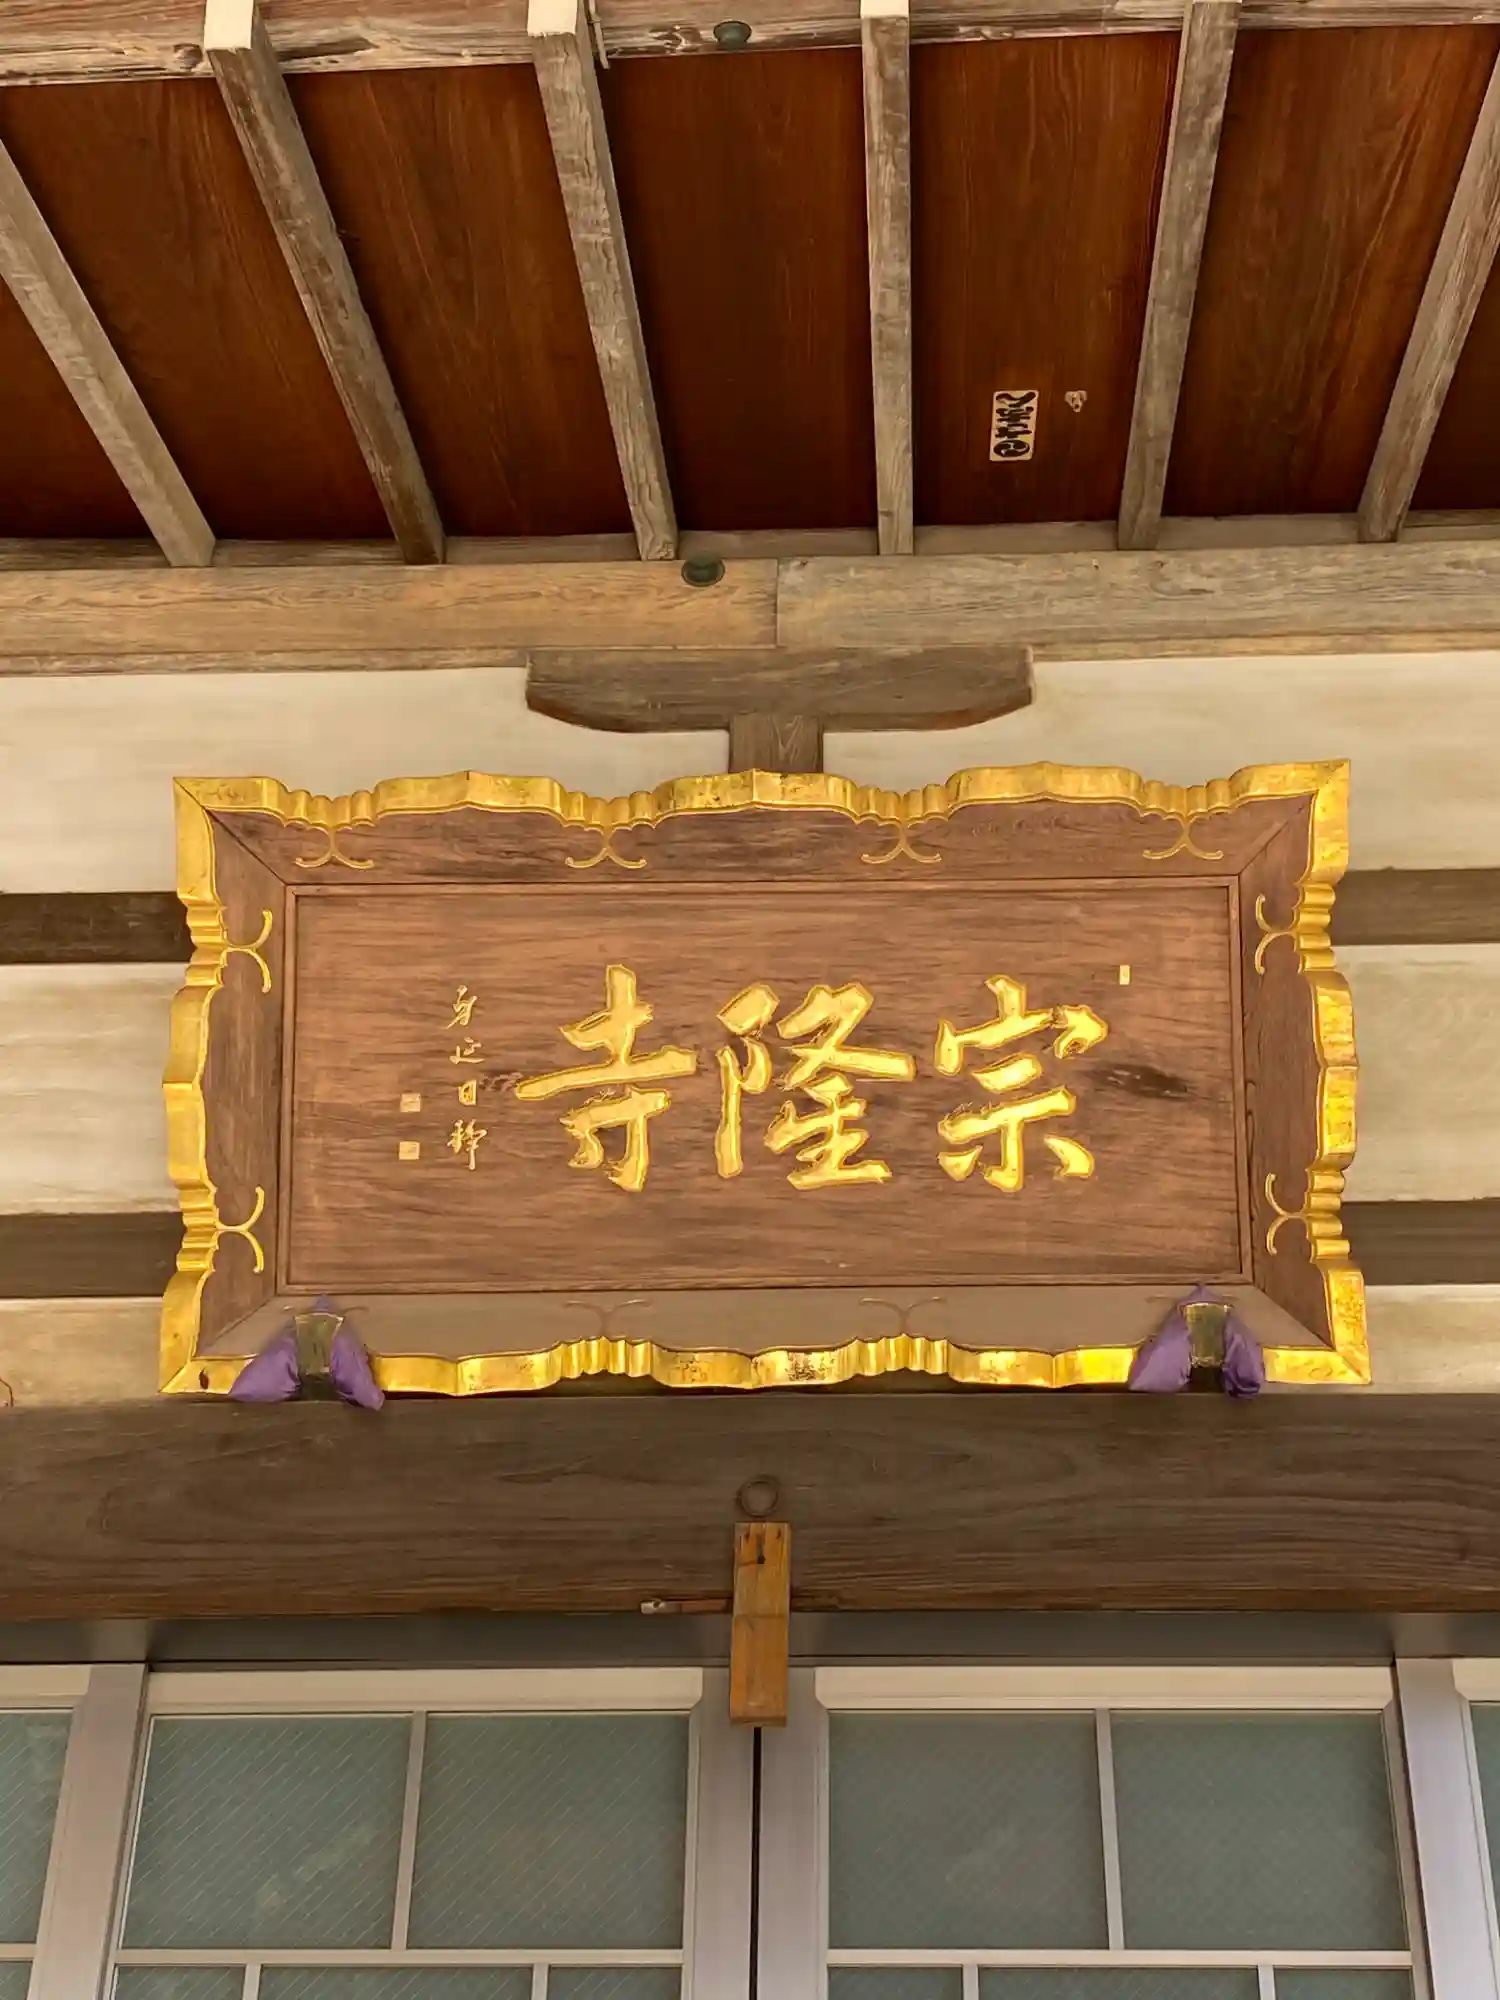 宗隆寺
身延日静